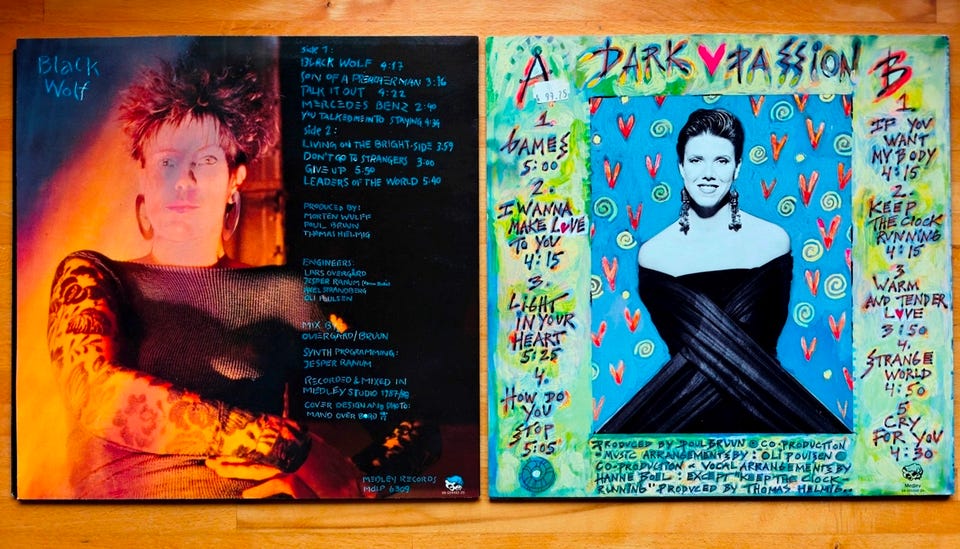 Black
Wolf
side 1:
BLACK WOLF 4:17
SON OF A PREACHERMAN 3:36
TALK IT OUT 4:22
MERCEDES BENZ 2:40
YOU TALKED ME INTO STAYING 4:34
side 2:
LIVING ON THE BRIGHT-SIDE 3:59
DON'T GO TO STRANGERS 3:00
GIVE UP 5:50
LEADERS OF THE WORLD 5:40
PRODUCED BY:
MORTEN WULFF
POUL BRUUN
THOMAS HELMIG
ENGINEERS:
LARS OVERGÅRD
JESPER RANUM
AXEL STRANDBERG
OLI POULSEN
MIX BY
OVERGÅRD/BRUUN
SYNTH PROGRAMMING:
JESPER RANUM
RECORDED & MIXED IN
MEDLEY STUDIO
COVER DESIGN AND PHOTO:
MANO OVER BORD
MEDLEY RECORDS
MdLP 6309
DARK ♥ PASSION
A
97.75
1
GAMES
5:00
2.
I WANNA
MAKE LOVE
TO YOU
4:15
3.
LIGHT
IN YOUR
HEART
5:25
4.
HOW DO
YOU
STOP
5:05
B
1
IF YOU
WANT
MY BODY
4:15
2.
KEEP
THE CLOCK
RUNNING
4:15
3
WARM
AND TENDER
LOVE
3:50
4.
STRANGE
WORLD
4:50
5
CRY
FOR YOU
4:30
PRODUCED BY POUL BRUUN © CO-PRODUCTION
MUSIC ARRANGEMENTS BY: OLI POULSEN
CO-PRODUCTION & VOCAL ARRANGEMENTS BY
HANNE BOEL: EXCEPT "KEEP THE CLOCK
RUNNING" PRODUCED BY THOMAS HELMIG
Medley